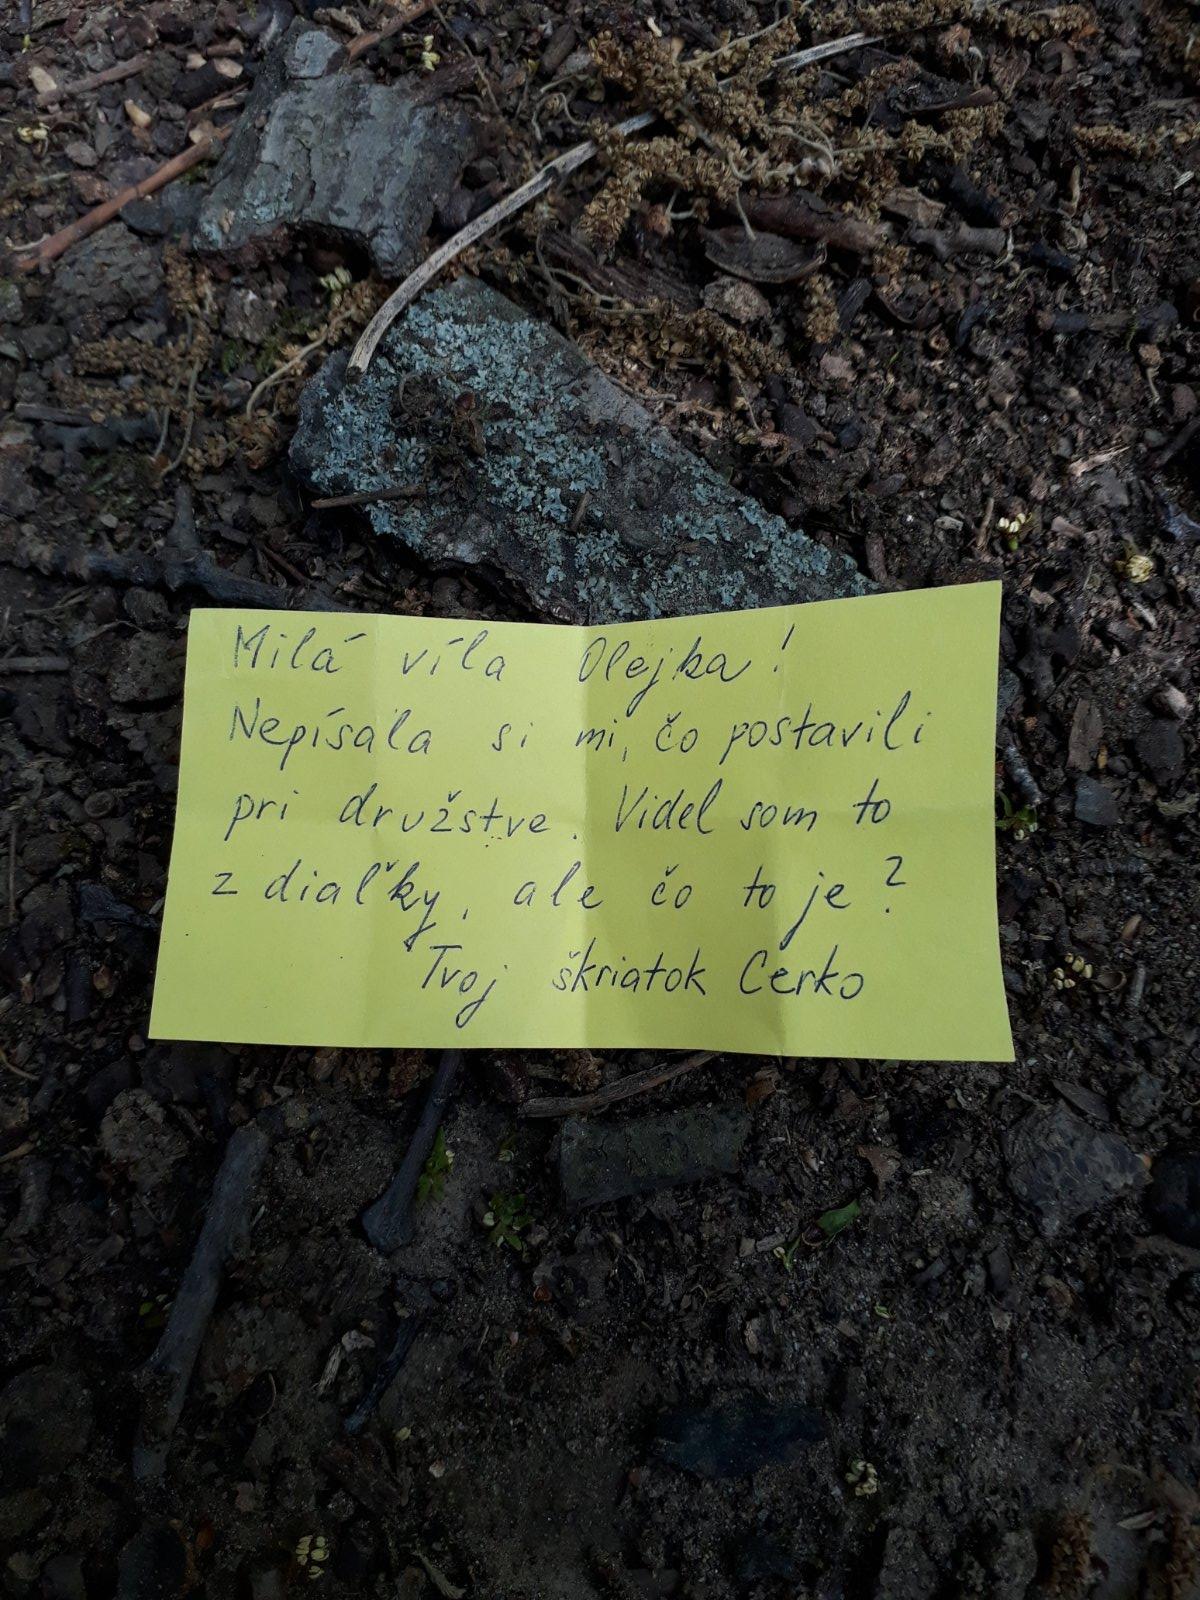 Milá víla Olejka!
Nepísala si mi, čo postavili
pri družstve. Videl som to
z diaľky, ale čo to je?
Tvoj škriatok Cerko